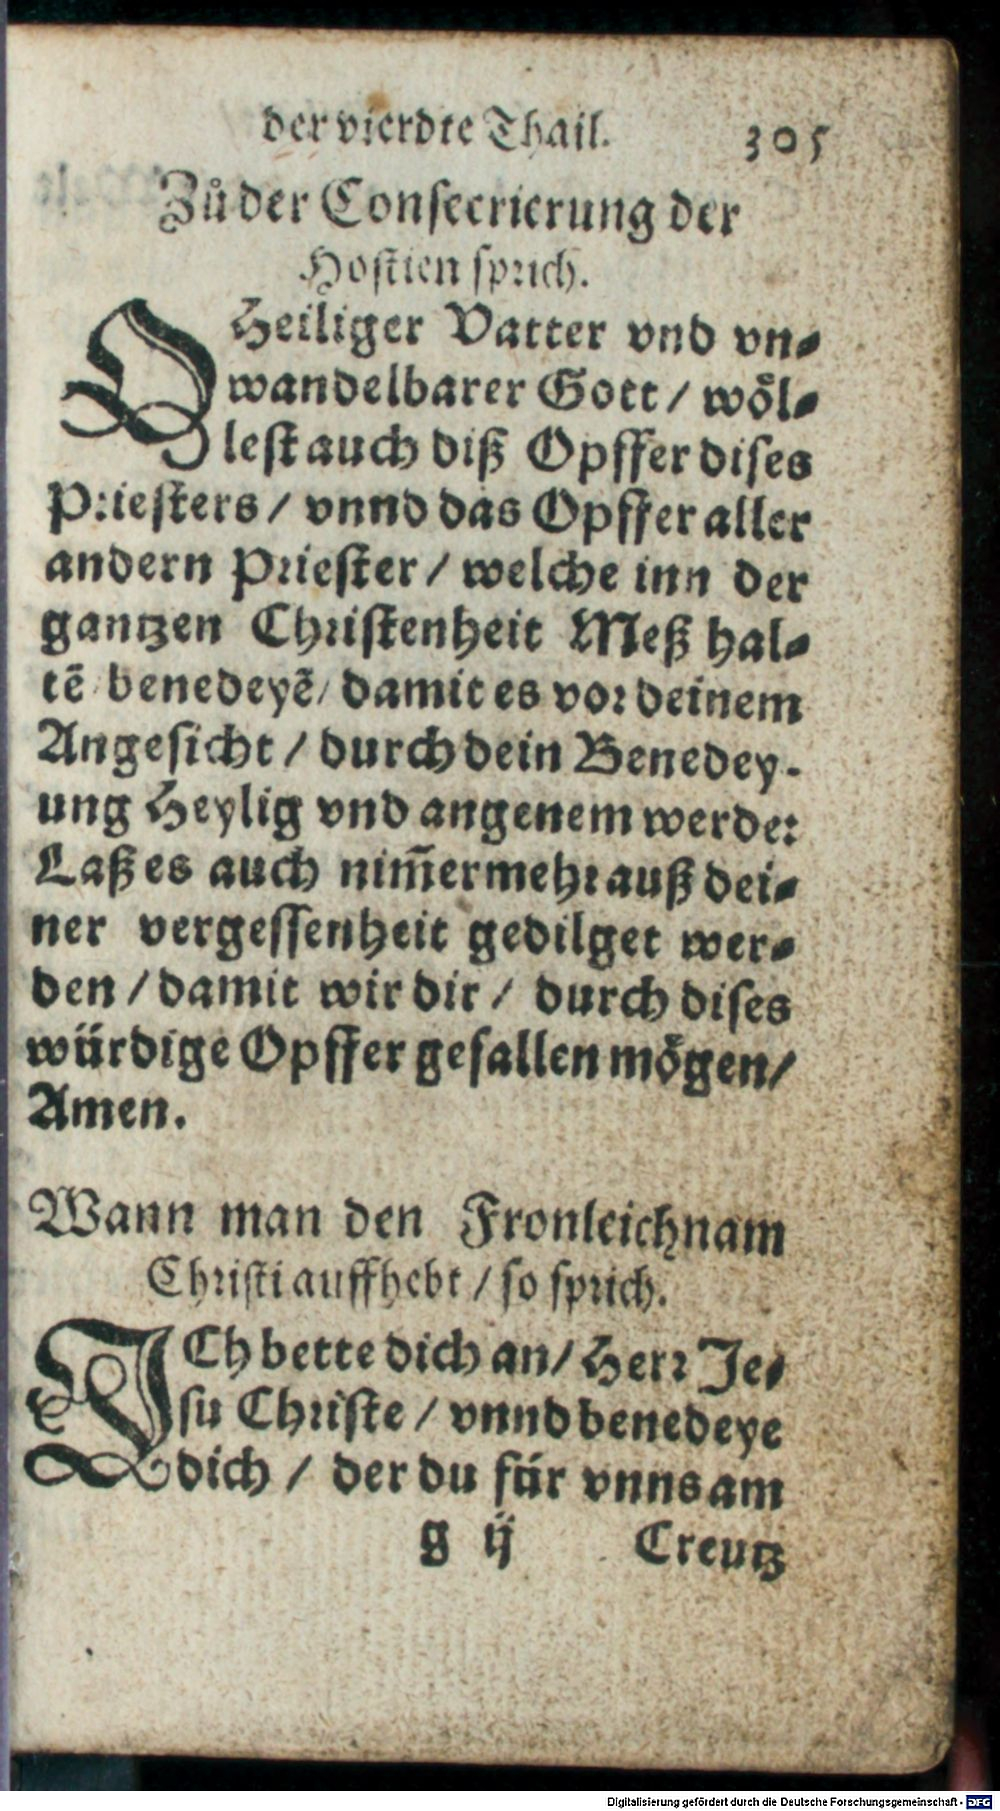 der vierdte Thail. 305
Zů der Consecrierung der
Hostien sprich.
O Heiliger Vatter vnd vn-
wandelbarer Gott / wöl-
lest auch diß Opffer dises
Priesters / vnnd das Opffer aller
andern Priester / welche inn der
gantzen Christenheit Meß hal-
tē / benedeyē / damit es vor deinem
Angesicht / durch dein Benedey-
ung Heylig vnd angenem werde:
Laß es auch nim̄ermehr auß dei-
ner vergessenheit gedilget wer-
den / damit wir dir / durch dises
würdige Opffer gefallen mögen /
Amen.
Wann man den Fronleichnam
Christi auffhebt / so sprich.
ICh bette dich an / Herr Je-
su Christe / vnnd benedeye
dich / der du für vnns am
g ij Creutz
Digitalisierung gefördert durch die Deutsche Forschungsgemeinschaft - DFG